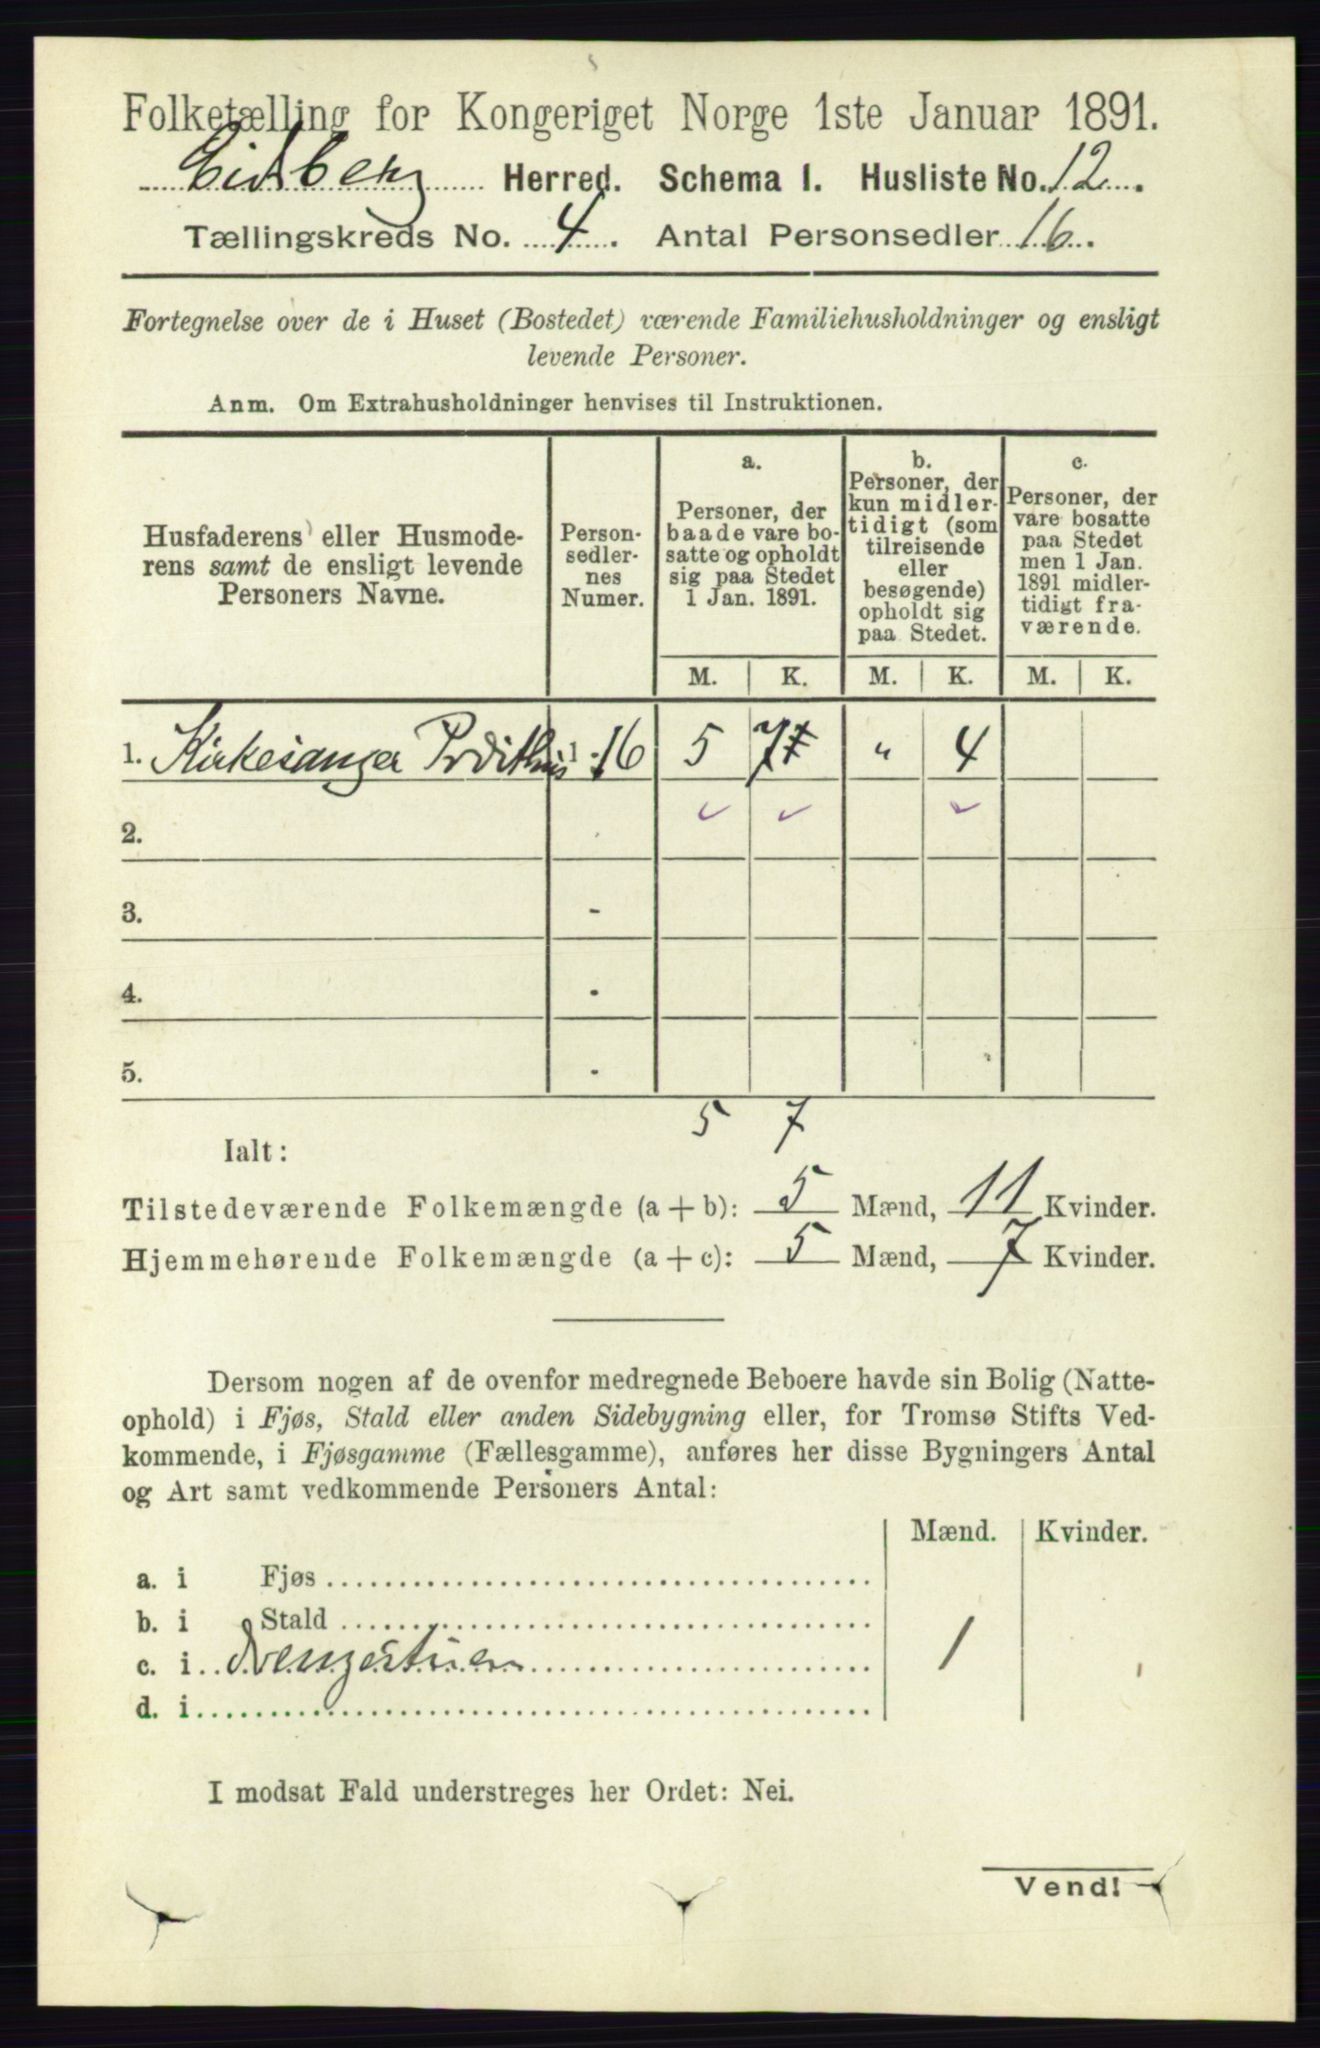 Folketælling for Kongeriget Norge 1ste Januar 1891.
Eidsberg Herred. Schema 1. Husliste No. 12.
Tællingskreds No. 4. Antal Personsedler 16.
Fortegnelse over de i Huset (Bostedet) værende Familiehusholdninger og ensligt
levende Personer.
Anm. Om Extrahusholdninger henvises til Instruktionen.
Husfaderens eller Husmode-
rens samt de ensligt levende
Personers Navne.
Person-
sedler-
nes
Numer.
a.
Personer, der
baade vare bo-
satte og opholdt
sig paa Stedet
1 Jan. 1891.
b.
Personer, der
kun midler-
tidigt (som
tilreisende
eller
besøgende)
opholdt sig
paa Stedet.
c.
Personer, der
vare bosatte
paa Stedet
men 1 Jan.
1891 midler-
tidigt fra-
værende.
M. K. M. K. M. K.
1. Kirkesanger 1-16 5 7 „ 4
2.
3. -
4. -
5. -
5 7
Ialt:
Tilstedeværende Folkemængde (a + b): 5 Mænd, 11 Kvinder.
Hjemmehørende Folkemængde (a + c): 5 Mænd, 7 Kvinder.
Dersom nogen af de ovenfor medregnede Beboere havde sin Bolig (Natte-
ophold) i Fjøs, Stald eller anden Sidebygning eller, for Tromsø Stifts Ved-
kommende, i Fjøsgamme (Fællesgamme), anføres her disse Bygningers Antal
og Art samt vedkommende Personers Antal:
Mænd. Kvinder.
a. i Fjøs
b. i Stald
c. i Drengestuen 1
d. i
I modsat Fald understreges her Ordet: Nei.
Vend!